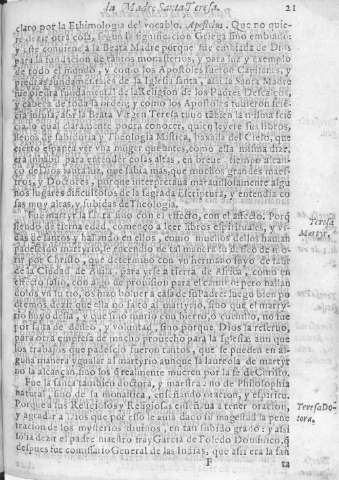 la Madre Santa Teresa. 21
claro por la Ethimologia del vocablo. Apostolus. Que no quie-
re dezir otra cosa, segun la significacion Griega sino embiado:
y este conuiene a la Beata Madre porque fue embiada de Dios
para la fundacion de tantos monasterios, y para luz y exemplo
de todo el mundo, y como los Apostoles fueron Capitanes, y
piedras fundamentales de la Iglesia santa, assi la Santa Madre
fue piedra fundamental de la Religion de los Padres Descalços,
y cabeça de toda la orden; y como los Apostoles tuuieron scié-
cia infusa, assi la Beata Virgen Teresa tuuo tambien infusa scié
cia lo qual claramente podra conocer, quien leyere sus libros,
llenos de sabiduria, y Theologia Mistica, baxada del Cielo, que
cierto espanta ver vna muger que antes, como ella misma dize,
era inhabil para entender cosas altas, en breue tiempo alcan-
ço de Dios tanta luz, que sabia mas que muchos grandes maes-
tros, y Doctores, porque interpretaua marauillosamente algu
nos lugares dificultosos de la sagrada Escritura, y entendia co
sas muy altas, y subidas de Theologia.
Fue martyr la santa sino con el effecto, con el affecto. Porq̃
siendo de tierna edad, començo a leer libros espirituales, y vi-
das de santos y hallando en ellos, como muchos dellos hauian
padescido martyrio, se encendio de tal manera su desseo de mo
rir por Christo, que determino con vn hermano suyo de salir
de la Ciudad de Auila, para yrse a tierra de Africa, como en
effecto salio, con algo de prouision para el camino; pero hallan
dolos vn su tio, los hizo boluer a casa de su padre: luego bien po
dremos dezir que ella no falto al martyrio, sino que el marty-
rio huyo della, y que sino murio con hierro, o cuchillo, no fue
por falta de desseo, y voluntad, sino porque Dios la reseruo
para otra empresa de mucho prouecho para la Iglesia: aun que
los trabajos que padescio fueron tantos, que se pueden en al-
guna manera ygualar al martyrio aunque la laureola de martyr
no la alcançan sino los q̃ realmente mueren por la fe de Christo.
Teresa
Martyr.
Fue la santa tambien doctora, y maestra no de Philosophia
natural, sino de la monastica, enseñando oracion, y espiritu.
Porque a sus Religiosos y Religiosas enseñaua a tener oracion,
y agradar a Dios que por esso le auia dado su magestad la pene
tracion de los mysterios diuinos, en tan subido grado: y assi
solia dezir el padre maestro fray Garcia de Toledo Dominico, q̃
despues fue comissario General de las Indias, que assi era la san
Teresa Do-
tora.
F ta